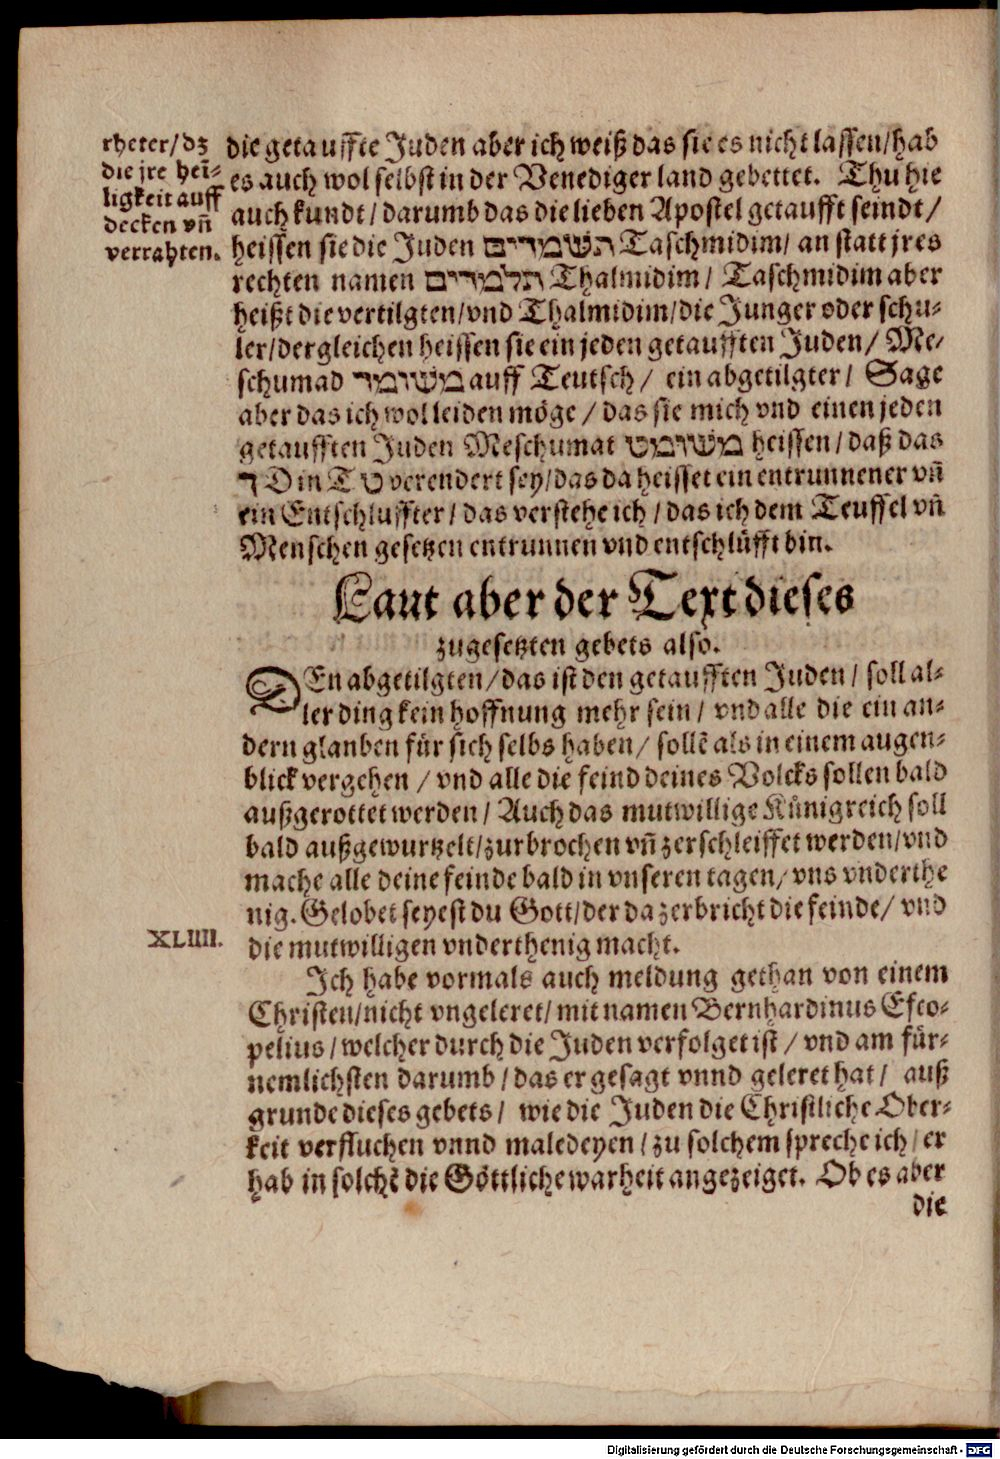 rheter/dz
die jre hei̅-
ligkeit auff
decken vn̅
verrahten.
die getauffte Juden aber ich weiß das sie es nicht lassen/hab
es auch wol selbst in der Venediger land gebettet. Thu hie
auch kundt/darumb das die lieben Apostel getaufft seindt/
heissen sie die Juden תשמדים Taschmidim/ an statt jres
rechten namen תלמדים Thalmidim/ Taschmidim aber
heißt die vertilgten/vnd Thalmidim/die Junger oder schu-
ler/dergleichen heissen sie ein jeden getaufften Juden/ Me-
schumad משומד auff Teutsch/ ein abgetilgter/ Sage
aber das ich wol leiden möge/das sie mich vnd einen jeden
getaufften Juden Meschumat משומט heissen/daß das
ד D in T ט verendert sey/das da heisset ein entrunnener vn̅
ein Entschluffter/das verstehe ich/das ich dem Teuffel vn̅
Menschen gesetzen entrunnen vnd entschlüfft bin.
Laut aber der Text dieses
zugesetzten gebets also.
DEn abgetilgten/das ist den getaufften Juden/ soll al-
ler ding kein hoffnung mehr sein/ vnd alle die ein an-
dern glauben für sich selbs haben/ solle̅ als in einem augen-
blick vergehen/vnd alle die feind deines Volcks sollen bald
außgerottet werden/ Auch das mutwillige Künigreich soll
bald außgewurtzelt/zurbrochen vn̅ zerschleiffet werden/vnd
mache alle deine feinde bald in vnseren tagen/vns vnderthe
nig. Gelobet seyest du Gott/der da zerbricht die feinde/ vnd
die mutwilligen vnderthenig macht.
XLIIII.
Ich habe vormals auch meldung gethan von einem
Christen/nicht vngeleret/mit namen Bernhardinus Esco-
pelius/welcher durch die Juden verfolget ist/vnd am für-
nemlichsten darumb/das er gesagt vnnd geleret hat/ auß
grunde dieses gebets/ wie die Juden die Christliche Ober-
keit verfluchen vnnd maledeyen/zu solchem spreche ich/er
hab in solche̅ die Göttliche warheit angezeiget. Ob es aber
die
Digitalisierung gefördert durch die Deutsche Forschungsgemeinschaft - DFG